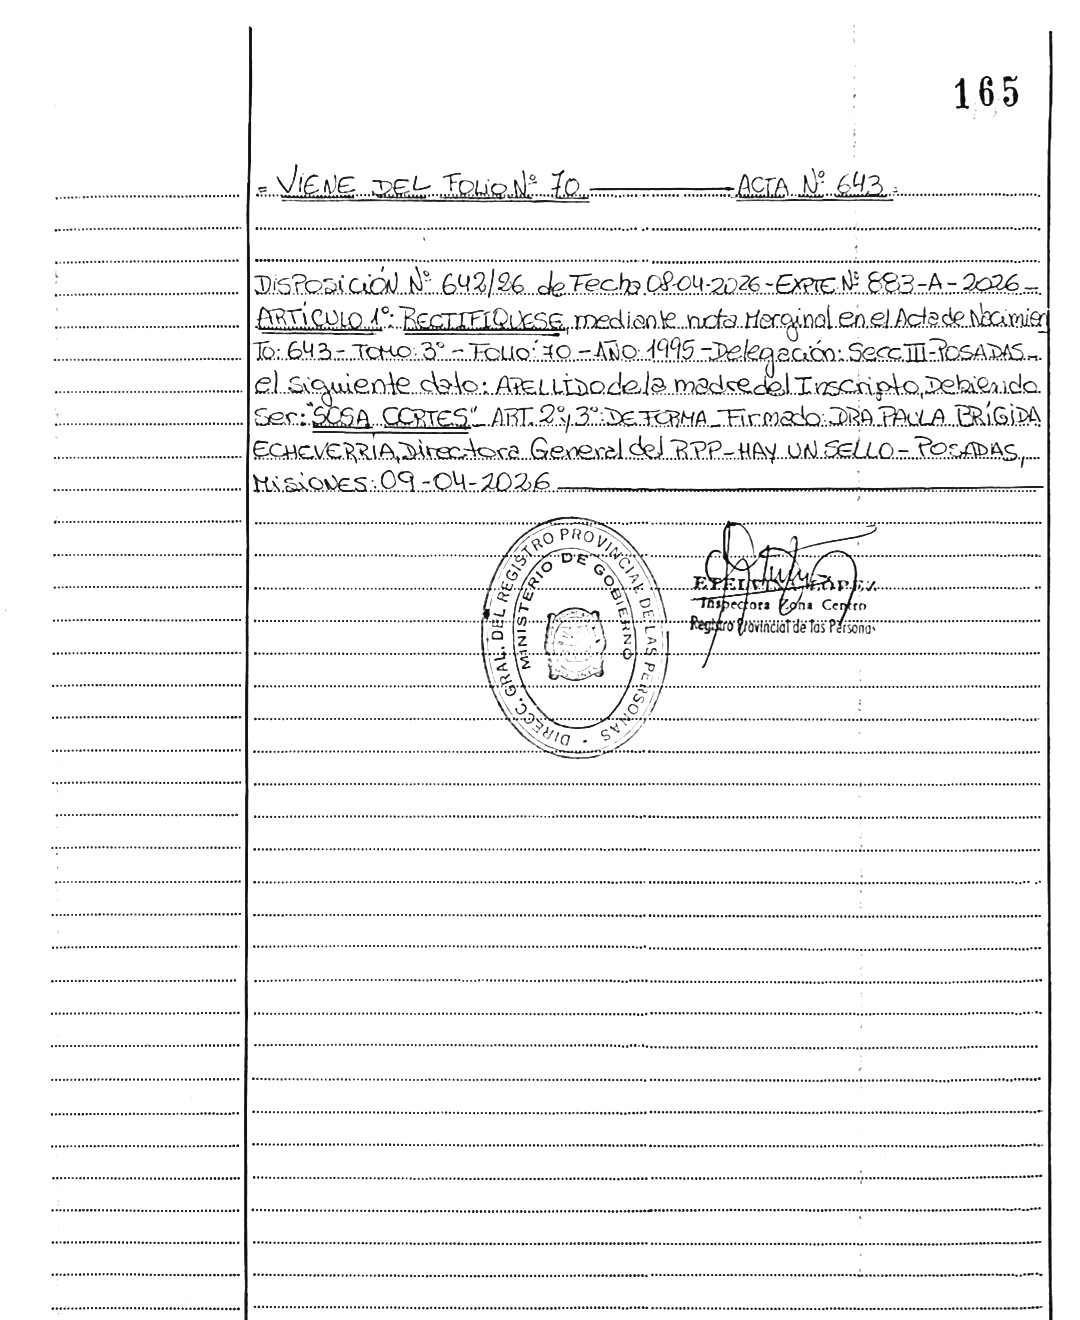 165
= VIENE DEL FOLIO Nº 70 ACTA Nº 643 =
DISPOSICIÓN Nº 642/26 de Fecha 08-04-2026 - EXPTE Nº 883-A-2026 -
ARTÍCULO 1º: RECTIFIQUESE, mediante nota Marginal en el Acta de Nacimien
To: 643 - TOMO: 3º - FOLIO: 70 - AÑO 1995 - Delegación: Secc III - POSADAS -
el siguiente dato: APELLIDO de la madre del Inscripto, Debiendo
Ser: "SOSA CORTES" ART. 2º y 3º: DE FORMA Firmado: DRA PAULA BRÍGIDA
ECHEVERRÍA, Directora General del RPP - HAY UN SELLO - POSADAS,
Misiones: 09-04-2026
DIRECC. GRAL. DEL REGISTRO PROVINCIAL DE LAS PERSONAS
MINISTERIO DE GOBIERNO
LÓPEZ
Inspectora Zona Centro
Registro Provincial de las Persona